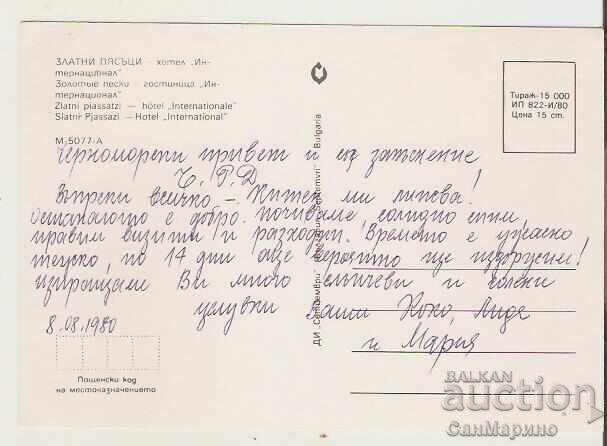 ЗЛАТНИ ПЯСЪЦИ — хотел „Ин-
тернационал"
Золотые пески — гостиница „Ин-
тернационал"
Zlatni piassatzi — hôtel „Internationale"
Slatni Pjassazi — Hotel „International"
М-5077-А
Тираж-15 000
ИП 822-И/80
Цена 15 ст.
Черноморски привет и със закъснение
Ч. Р. Д.
Въпреки всичко – Житен ми липсва!
Останалото е добро. Почиваме, солидно спим,
правим визити и разходки. Времето е ужасно
тецко, но 14 дни още вероятно ще издържим!
изпращаме Ви много слънчеви и солени
целувки ваши Коко, Лиде
и Мария
8.08.1980
Пощенски код
на местоназначението
ДИ „Септември" Bulgaria
BALKAN
auction
СанМарино